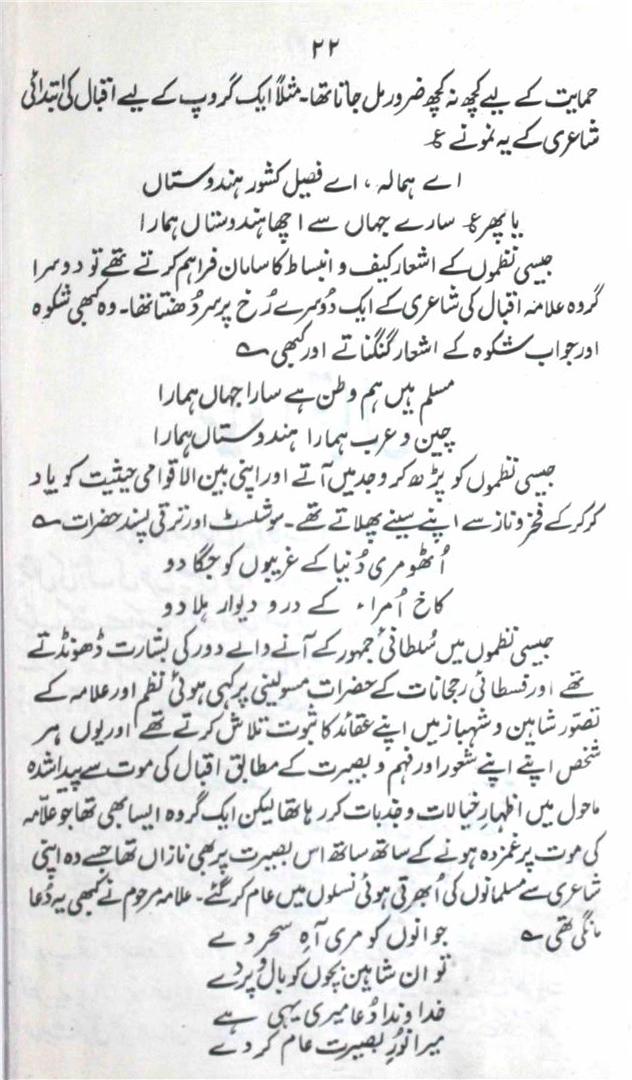 ۲۲
حمایت کے لیے کچھ نہ کچھ ضرور مل جاتا تھا۔ مثلاً ایک گروپ کے لیے اقبال کی ابتدائی
شاعری کے یہ نمونے ؏
اے ہمالہ ، اے فصیل کشور ہندوستاں
یا پھر ؏ سارے جہاں سے اچھا ہندوستاں ہمارا
جیسی نظموں کے اشعار کیف و انبساط کا سامان فراہم کرتے تھے تو دوسرا
گروہ علامہ اقبال کی شاعری کے ایک دُوسرے رُخ پر سر دُھنتا تھا۔ وہ کبھی شکوہ
اور جواب شکوہ کے اشعار گنگناتے اور کبھی ؎
مسلم ہیں ہم وطن ہے سارا جہاں ہمارا
چین و عرب ہمارا ہندوستاں ہمارا
جیسی نظموں کو پڑھ کر وجد میں آتے اور اپنی بین الاقوامی حیثیت کو یاد
کر کر کے فخر و ناز سے اپنے سینے پھلاتے تھے۔ سوشلسٹ اور ترقی پسند حضرات ؎
اُٹھو مری دُنیا کے غریبوں کو جگا دو
کاخِ اُمراء کے در و دیوار ہلا دو
جیسی نظموں میں سُلطانیٔ جمہور کے آنے والے دور کی بشارت ڈھونڈتے
تھے اور فسطائی رجحانات کے حضرات مسولینی پر کہی ہوئی نظم اور علامہ کے
تصوّر شاہین و شہباز میں اپنے عقائد کا ثبوت تلاش کرتے تھے اور یوں ہر
شخص اپنے اپنے شعور اور فہم و بصیرت کے مطابق اقبال کی موت سے پیدا شدہ
ماحول میں اظہارِ خیالات و جذبات کر رہا تھا لیکن ایک گروہ ایسا بھی تھا جو علاّمہ
کی موت پر غمزدہ ہونے کے ساتھ ساتھ اس بصیرت پر بھی نازاں تھا جسے وہ اپنی
شاعری سے مسلمانوں کی اُبھرتی ہوئی نسلوں میں عام کر گئے۔ علامہ مرحوم نے کبھی یہ دُعا
مانگی تھی ؎
جوانوں کو مری آہِ سحر دے
تو ان شاہین بچوں کو بال و پر دے
خداوندا دُعا میری یہی ہے
میرا نُورِ بصیرت عام کر دے